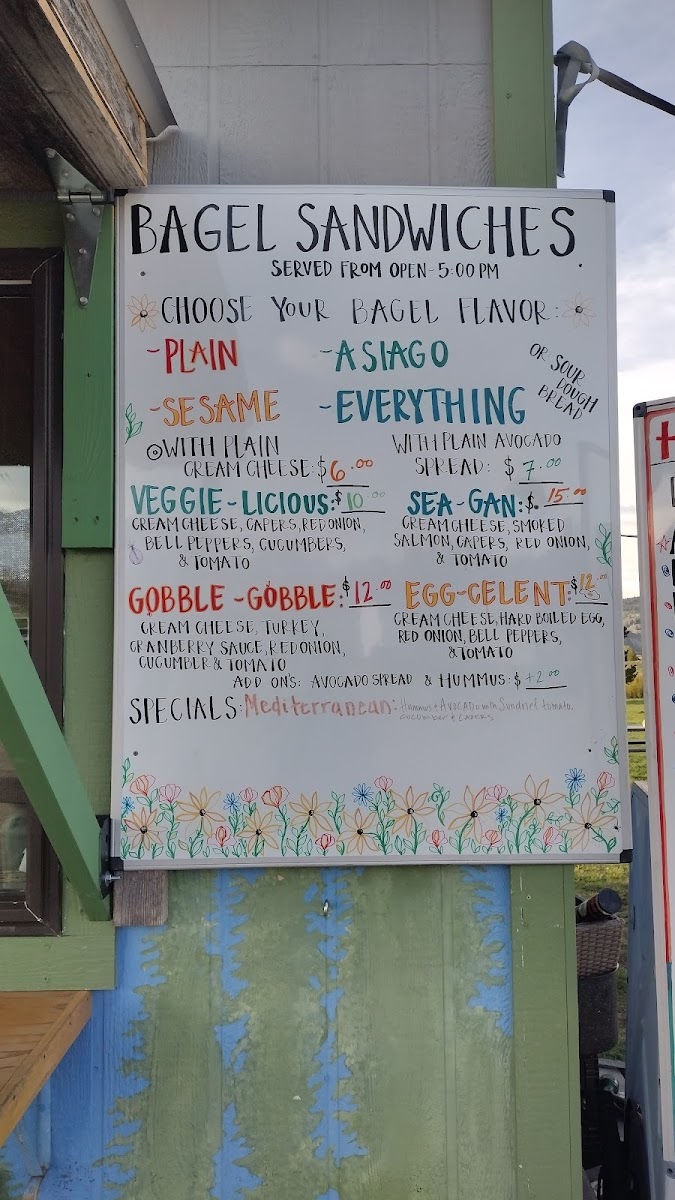 BAGEL SANDWICHES
SERVED FROM OPEN-5:00PM
CHOOSE YOUR BAGEL FLAVOR:
-PLAIN
-ASIAGO
-SESAME
-EVERYTHING
OR SOUR
DOUGH
BREAD
WITH PLAIN
CREAM CHEESE:$6.00
WITH PLAIN AVOCADO
SPREAD: $7.00
VEGGIE-LICIOUS:$10.00
CREAM CHEESE, CAPERS, RED ONION,
BELL PEPPERS, CUCUMBERS,
& TOMATO
SEA-GAN:$15.00
CREAM CHEESE, SMOKED
SALMON, CAPERS, RED ONION,
& TOMATO
GOBBLE-GOBBLE:$12.00
CREAM CHEESE, TURKEY,
CRANBERRY SAUCE, RED ONION,
CUCUMBER & TOMATO
EGG-CELENT:$12.00
CREAM CHEESE, HARD BOILED EGG,
RED ONION, BELL PEPPERS,
& TOMATO
ADD ON'S: AVOCADO SPREAD & HUMMUS:$+2.00
SPECIALS:Mediterranean:
Hummus + AVOCADO with Sundried tomato,
cucumber & capers
H